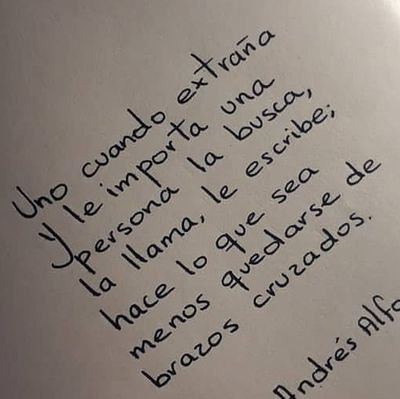 Uno cuando extraña
y le importa una
persona la busca,
la llama, le escribe;
hace lo que sea
menos quedarse de
brazos cruzados.
Andrés